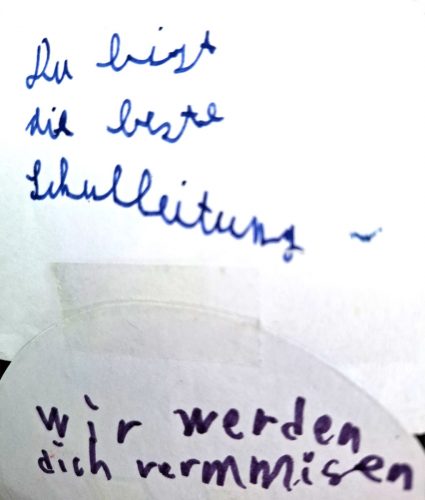 Du bist
die beste
Schulleitung
wir werden
dich vermmisen